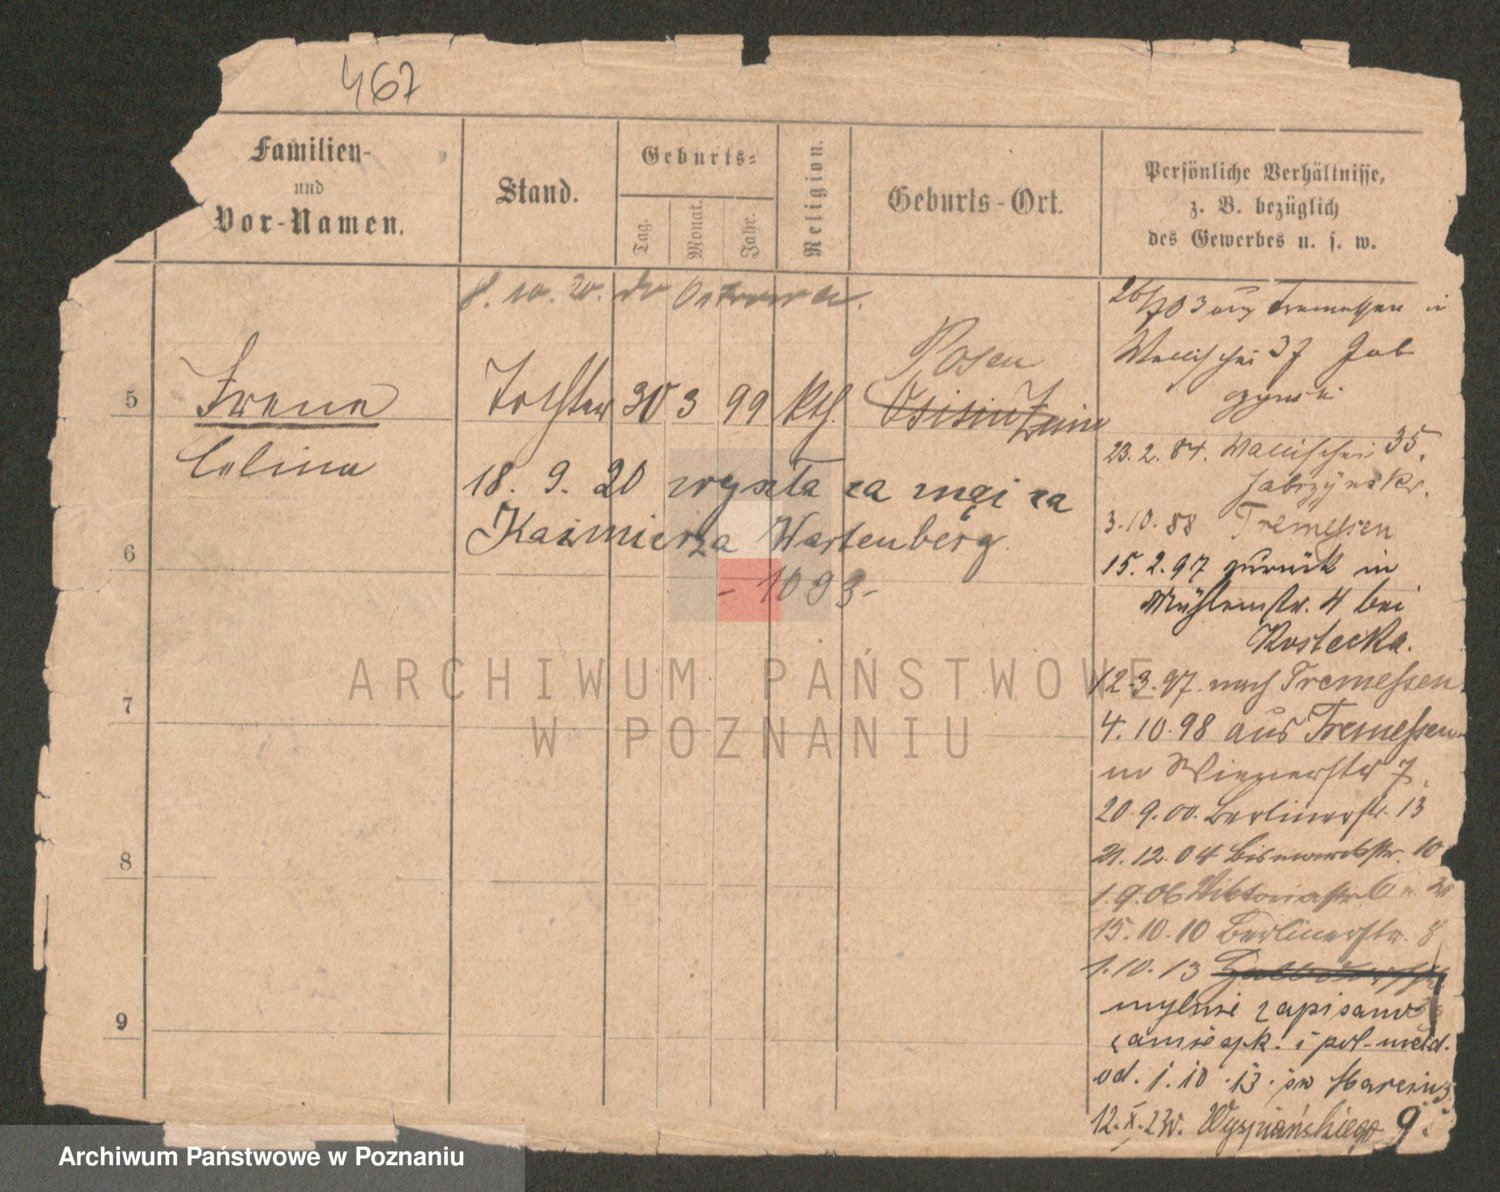 467
Familien-
und
Vor-Namen.
Stand.
Geburts-
Tag.
Monat.
Jahr.
Religion.
Geburts-Ort.
Persönliche Verhältnisse,
z. B. bezüglich
des Gewerbes u. s. w.
8. 10. 20. do Ostrowa.
5
Irena
Celina
Tochter
30
3
99
kth.
Posen
18. 9. 20 wyszła za mąż za
Kazimierza Wartenberg
- 1093 -
6
7
8
9
Tremessen in
Wallischei 37
23. 2. 84. Wallischei 35.
3. 10. 88 Tremessen
15. 2. 97 zurück in
Mühlenstr. 4 bei
Kostecka.
12. 3. 97 nach Tremessen
4. 10. 98 aus Tremessen
in Wienerstr 7.
20. 9. 00. Berlinerstr. 13
21. 12. 04 Bismarckstr. 10
1. 9. 06 Viktoriastr
15. 10. 10 Berlinerstr. 8
1. 10. 13
mylnie zapisano
zamieszk. i pol-meld.
od. 1. 10. 13. św Marcin
12. X. 23r. Wyspiańskiego 9.
ARCHIWUM PAŃSTWOWE
W POZNANIU
Archiwum Państwowe w Poznaniu